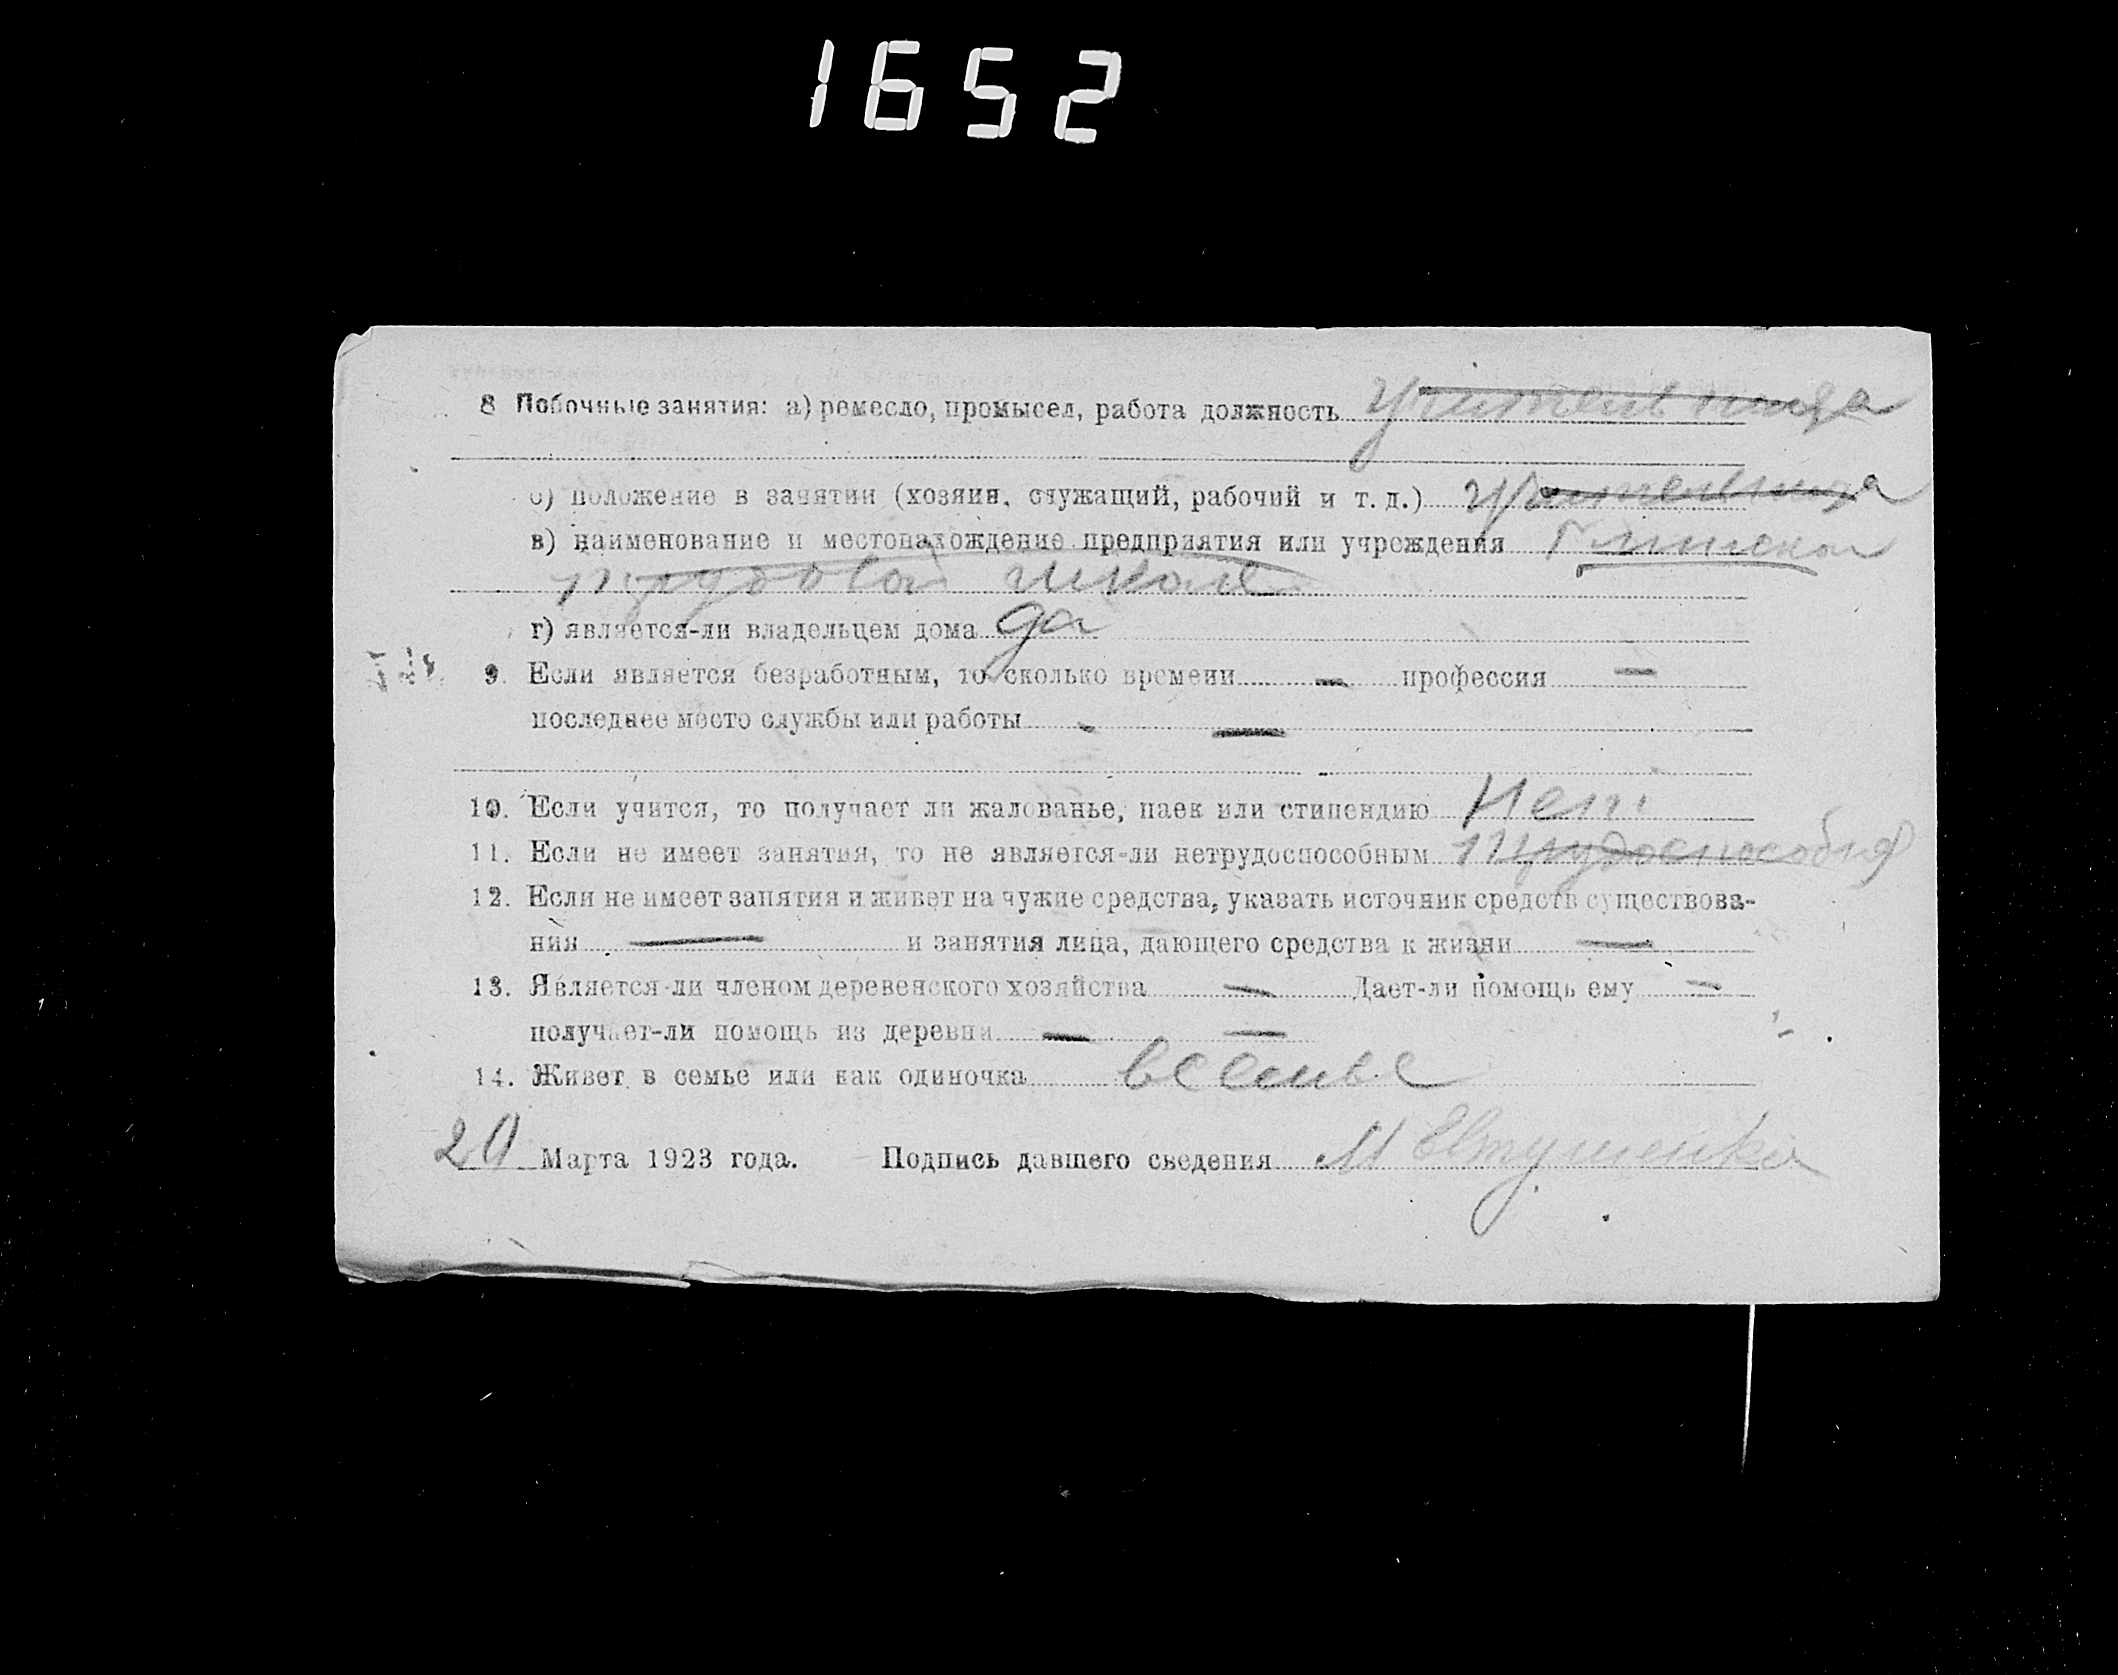 1652
8 Побочные занятия: а) ремесло, промысел, работа должность учительница
б) положение в занятии (хозяин, служащий, рабочий и т. д.) учительница
в) наименование и местонахождение предприятия или учреждения Глинской
трудовой школе
г) является-ли владельцем дома да
9. Если является безработным, то сколько времени — профессия —
последнее место службы или работы —
10. Если учится, то получает ли жалованье, паек или стипендию Нет
11. Если не имеет занятия, то не является-ли нетрудоспособным трудоспособна
12. Если не имеет занятия и живет на чужие средства, указать источник средств существова-
ния — и занятия лица, дающего средства к жизни —
13. Является-ли членом деревенского хозяйства — Дает-ли помощь ему —
получает-ли помощь из деревни — —
14. Живет в семье или как одиночка в семье
20 Марта 1923 года. Подпись давшего сведения М Евтушенко